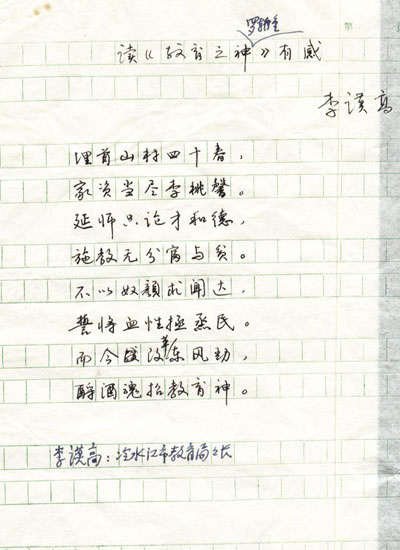 第
罗辀重
读《教育之神》有感
李谟高
埋首山村四十春，
家资当尽李桃馨。
延师只论才和德，
施教无分富与贫。
不以奴颜求闻达，
誓将血性拯烝民。
而今改革东风劲，
酹酒魂招教育神。
李谟高：冷水江市教育局々长